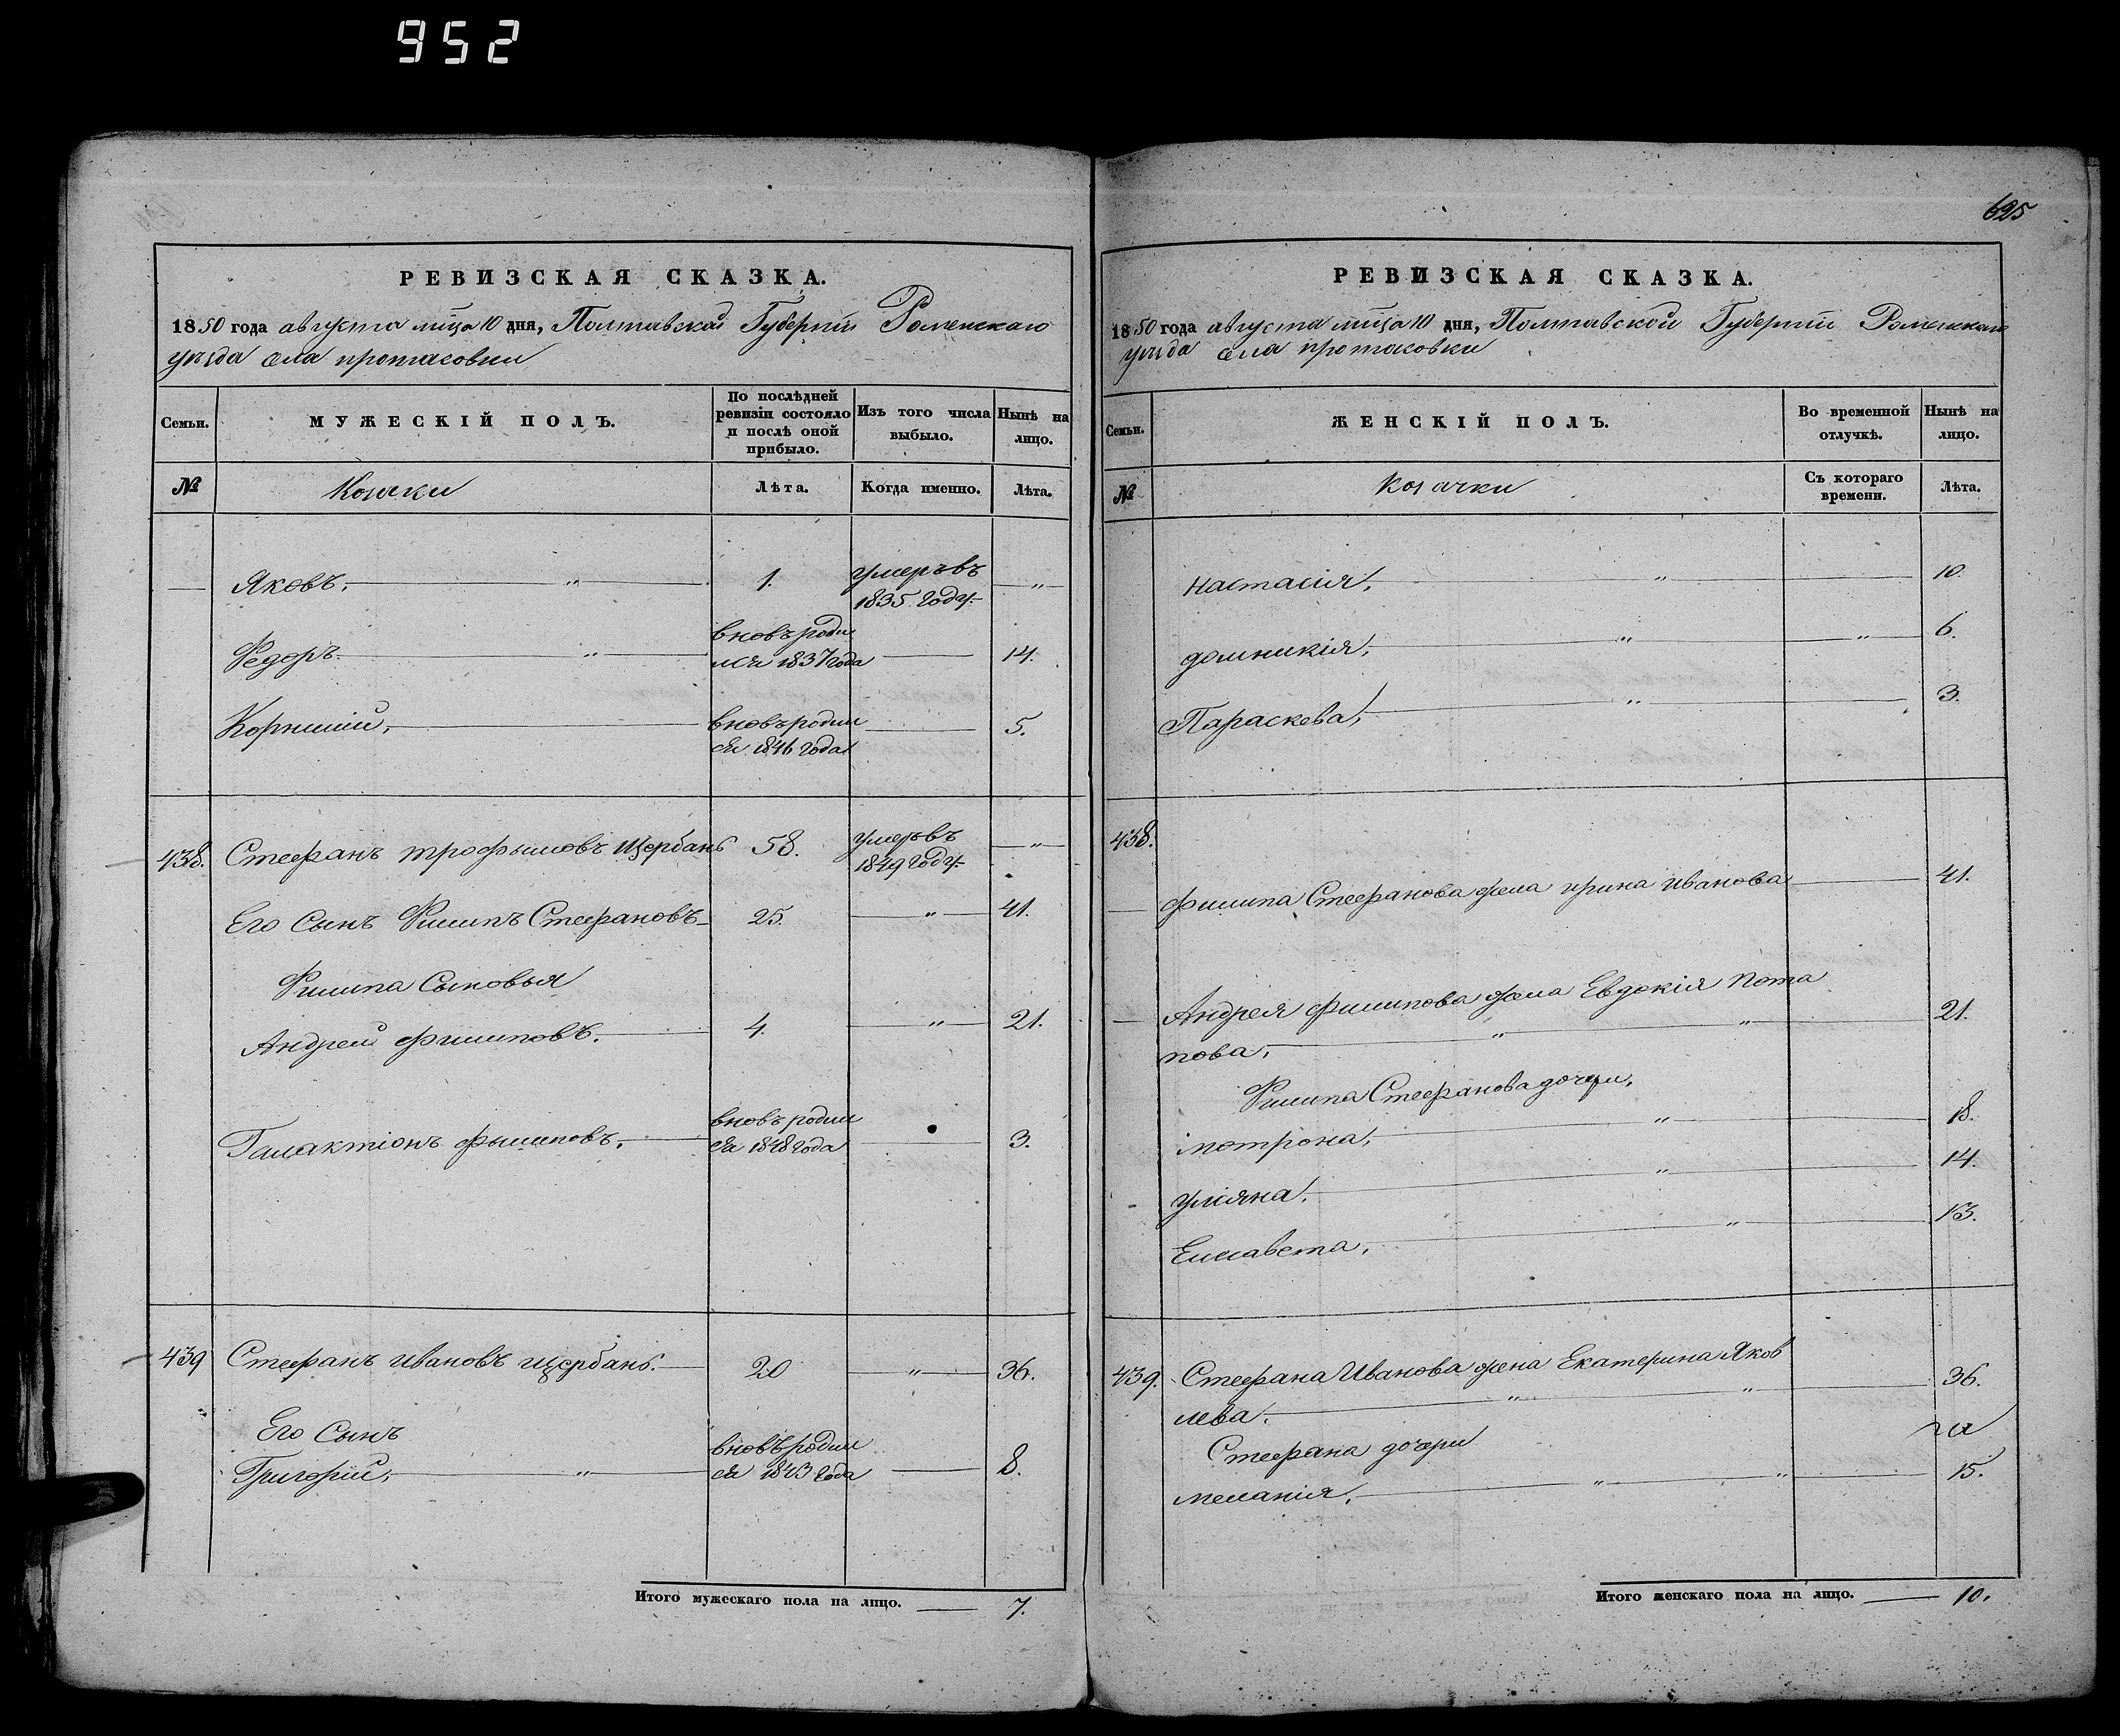 952
625
РЕВИЗСКАЯ СКАЗКА.
1850 года августа мца 10 дня, Полтавской Губерніи Роменскаго
уезда села протасовки
Семьи.
МУЖЕСКІЙ ПОЛЪ.
По послѣдней ревизіи состояло и послѣ оной прибыло.
Изъ того числа выбыло.
Нынѣ на лицо.
№
Козаки
Лѣта.
Когда именно.
Лѣта.
Яковъ. 1. умеръ въ
1835. году.
Федоръ вновь роди
лся 1837 года 14.
Корнилий, вновь родил
ся 1846 года 5.
438. Стефанъ трофымовъ щербань 58. умеръ въ
1849 году.
Его Сынъ Филипъ Стефановъ 25. 41.
Филипа Сыновья
Андрей филиповъ. 4. 21.
Галактіонъ фылиповъ. вновь родил
ся 1848 года 3.
439 Стефанъ ивановъ щербань. 20 36.
Его Сынъ
Григорій, вновь родил
ся 1843 года 8.
Итого мужескаго пола на лицо. 7.
РЕВИЗСКАЯ СКАЗКА.
1850 года августа мца 10 дня, Полтавской Губерніи Роменскаго
уезда села протасовки
Семьи.
ЖЕНСКІЙ ПОЛЪ.
Во временной отлучкѣ.
Нынѣ на лицо.
№
Козачки
Съ котораго времени.
Лѣта.
настасія, 10.
домникія, 6.
Параскева, 3.
438.
филипа Стефанова жена ирина иванова 41.
Андрея филипова жена Евдокія пота
пова, 21.
Филипа Стефанова дочери,
мотрона, 18.
уліяна. 14.
Елисавета, 13.
439. Стефана Иванова жена Екатерина Яков
лева. 36.
Стефана дочери
меланія, 15.
Итого женскаго пола на лицо. 10.